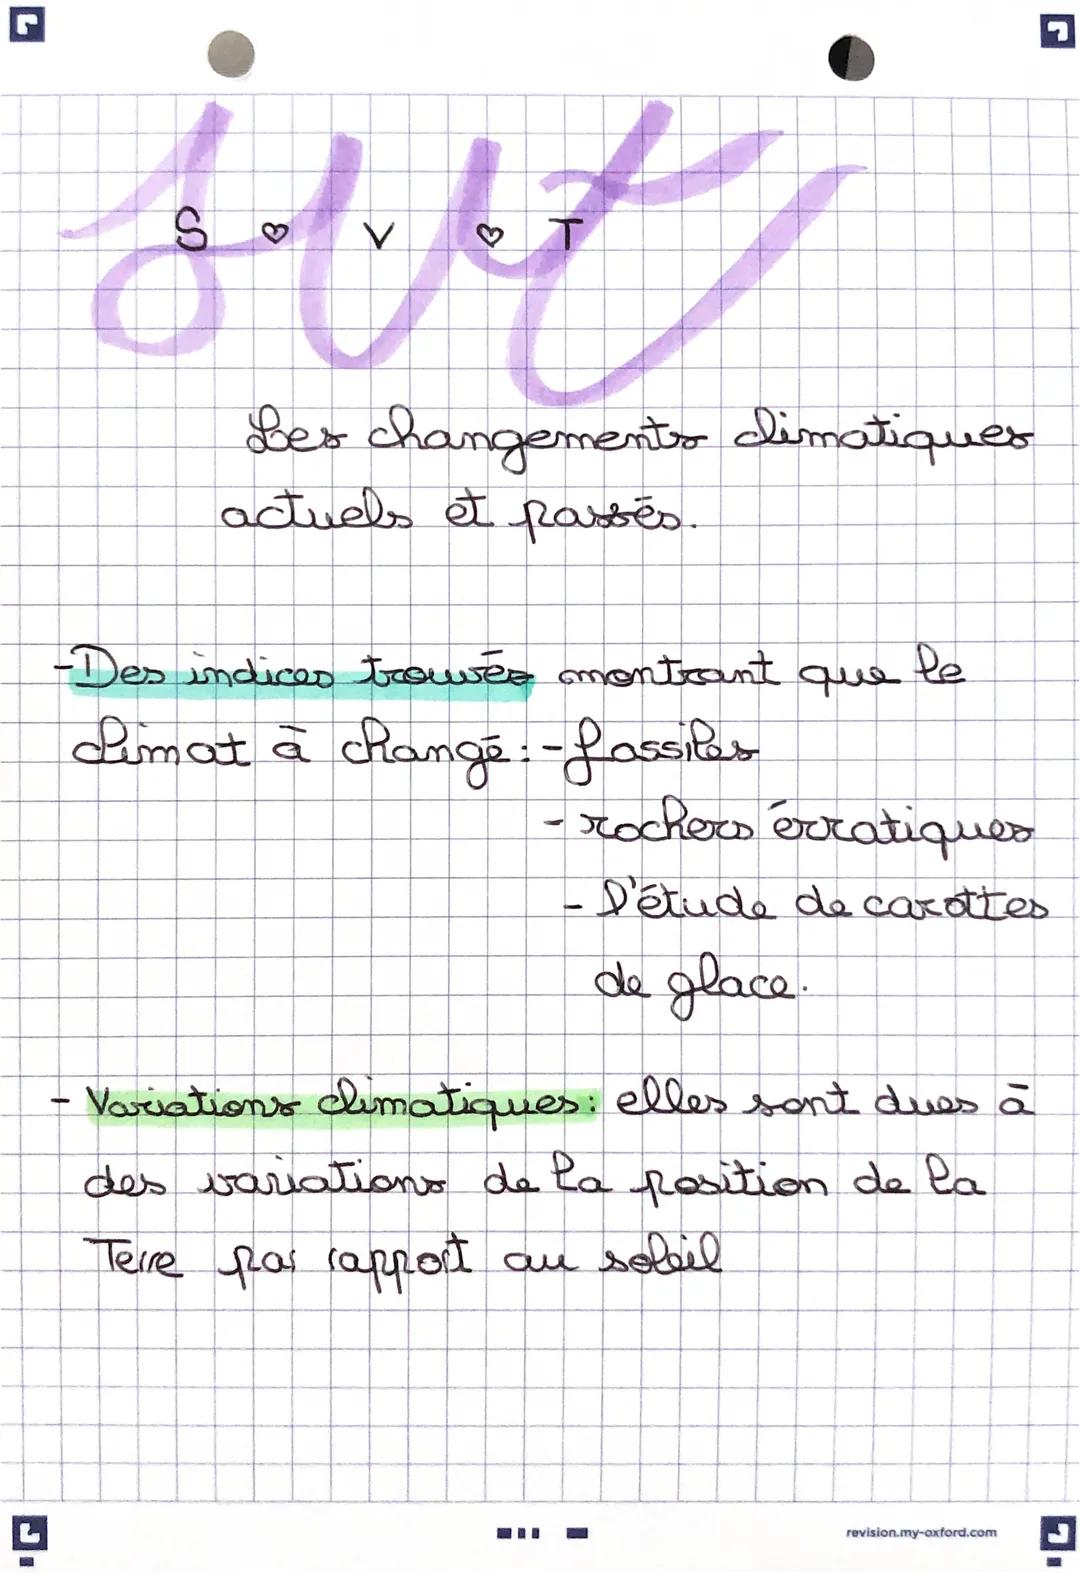 svt
S ♡ V ♡ T
Les changements climatiques
actuels et passés.
-Des indices trouvés montrant que le
climat à changé: -fossiles
- rochers érratiques
- l'étude de carottes
de glace.
- Variations climatiques: elles sont dues à
des variations de la position de la
Terre par rapport au soleil
revision.my-oxford.com